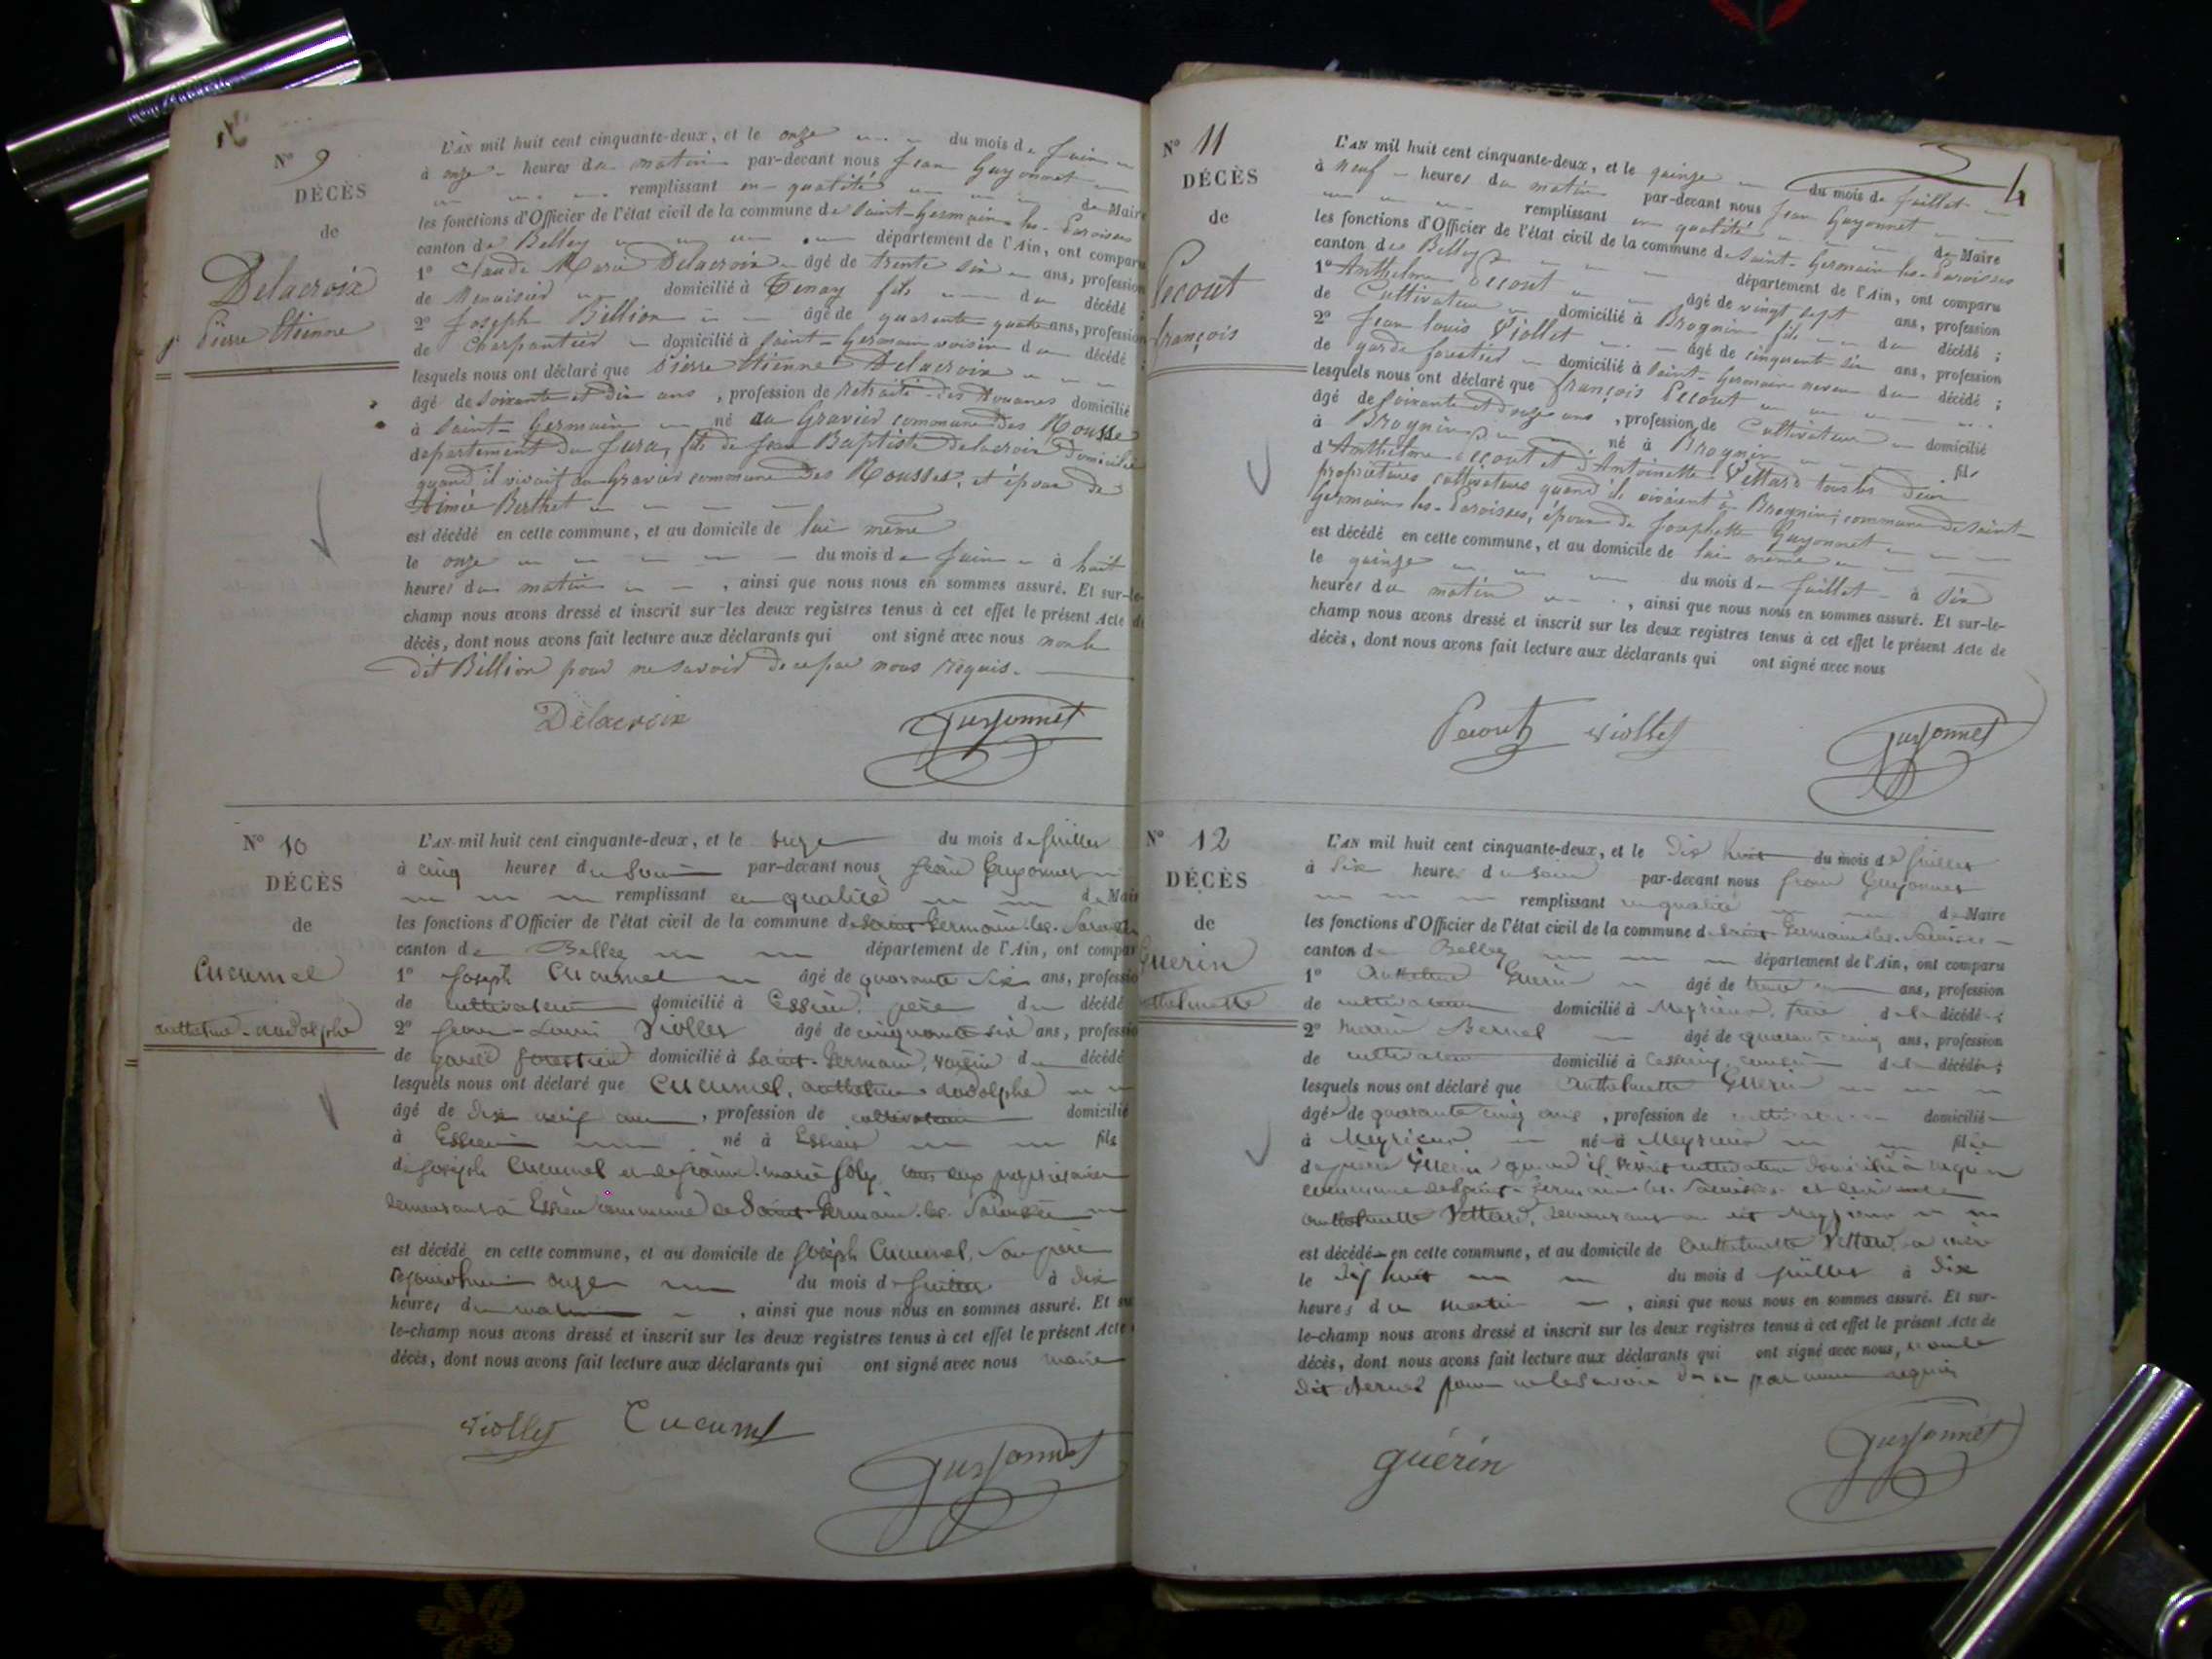 N° 9
DÉCÈS
de
Delacroix
Pierre Etienne
L'AN mil huit cent cinquante-deux, et le onze du mois de Juin
à onze heures du matin par-devant nous Jean Guyonnet
remplissant en qualité de Maire
les fonctions d'Officier de l'état civil de la commune de Saint-Germain-les-Paroisses
canton de Belley département de l'Ain, ont comparu
1° Claude Marie Delacroix âgé de trente six ans, profession
de Menuisier domicilié à Tenay fils du décédé ;
2° Joseph Billion âgé de quarante quatre ans, profession
de Charpentier domicilié à Saint-Germain voisin du décédé ;
lesquels nous ont déclaré que Pierre Etienne Delacroix
âgé de soixante et dix ans, profession de retraité des Douanes domicilié
à Saint-Germain né au Gravier commune des Rousses
département du Jura, fils de Jean Baptiste Delacroix domicilié
quand il vivait au Gravier commune des Rousses, et époux de
Aimée Berthet
est décédé en cette commune, et au domicile de lui même
le onze du mois de Juin à huit
heures du matin, ainsi que nous nous en sommes assuré. Et sur-le-
champ nous avons dressé et inscrit sur les deux registres tenus à cet effet le présent Acte de
décès, dont nous avons fait lecture aux déclarants qui ont signé avec nous non le
dit Billion pour ne savoir de ce par nous requis.
Delacroix Guyonnet
N° 10
DÉCÈS
de
Cucumel
anthelme-adolphe
L'AN mil huit cent cinquante-deux, et le du mois de juillet
à cinq heures du soir par-devant nous jean Guyonnet
remplissant en qualité de Maire
les fonctions d'Officier de l'état civil de la commune de Saint-Germain-les-Paroisses
canton de Belley département de l'Ain, ont comparu
1° joseph Cucumel âgé de quarante six ans, profession
de cultivateur domicilié à Essieu, père du décédé
2° jean-Louis Viollet âgé de cinquante six ans, profession
de garde forestier domicilié à Saint-Germain, voisin du décédé
lesquels nous ont déclaré que Cucumel, anthelme adolphe
âgé de dix neuf ans, profession de cultivateur domicilié
à Essieu né à Essieu fils
de joseph Cucumel et de marie joly, tous deux propriétaires
demeurant à Essieu commune de Saint-Germain-les-Paroisses
est décédé en cette commune, et au domicile de joseph Cucumel, son père
aujourd'hui onze du mois de juillet à dix
heures du matin, ainsi que nous nous en sommes assuré. Et sur-
le-champ nous avons dressé et inscrit sur les deux registres tenus à cet effet le présent Acte
décès, dont nous avons fait lecture aux déclarants qui ont signé avec nous maire
Violley Cucumel
Guyonnet
4
N° 11
DÉCÈS
de
Pecout
françois
L'AN mil huit cent cinquante-deux, et le quinze du mois de Juillet
à Neuf heures du matin par-devant nous Jean Guyonnet
remplissant en qualité de Maire
les fonctions d'Officier de l'état civil de la commune de Saint-Germain-les-Paroisses
canton de Belley département de l'Ain, ont comparu
1° Anthelme Pecout âgé de vingt sept ans, profession
de Cultivateur domicilié à Brognin fils du décédé ;
2° Jean louis Viollet âgé de cinquante six ans, profession
de garde forestier domicilié à Saint-Germain neveu du décédé ;
lesquels nous ont déclaré que françois Pecout
âgé de soixante et douze ans, profession de Cultivateur domicilié
à Brognin né à Brognin fils
d'Anthelme Pecout et d'Antoinette Vettard tous les deux
propriétaires cultivateurs quand ils vivaient à Brognin, commune de Saint-
Germain-les-Paroisses, époux de Josephette Guyonnet
est décédé en cette commune, et au domicile de lui même
le quinze du mois de Juillet à six
heures du matin, ainsi que nous nous en sommes assuré. Et sur-le-
champ nous avons dressé et inscrit sur les deux registres tenus à cet effet le présent Acte de
décès, dont nous avons fait lecture aux déclarants qui ont signé avec nous
Pecout Violley Guyonnet
N° 12
DÉCÈS
de
Guerin
anthelmette
L'AN mil huit cent cinquante-deux, et le dix huit du mois de juillet
à six heures du soir par-devant nous jean Guyonnet
remplissant en qualité de Maire
les fonctions d'Officier de l'état civil de la commune de Saint-Germain-les-Paroisses
canton de Belley département de l'Ain, ont comparu
1° anthelme Guerin âgé de trente ans, profession
de cultivateur domicilié à Meyrieux, frère de la décédée ;
2° Bernel âgé de quarante cinq ans, profession
de cultivateur domicilié à cousin de la décédée ;
lesquels nous ont déclaré que anthelmette Guerin
âgée de quarante cinq ans, profession de cultivateur domiciliée
à Meyrieux née à Meyrieux fille
de pierre Guerin quand il vivait cultivateur domicilié à
commune de Saint-Germain-les-Paroisses et
anthelmette Vettard, demeurant au dit Meyrieux
est décédée en cette commune, et au domicile de anthelmette Vettard, sa mère
le dix huit du mois de juillet à dix
heures du matin, ainsi que nous nous en sommes assuré. Et sur-
le-champ nous avons dressé et inscrit sur les deux registres tenus à cet effet le présent Acte de
décès, dont nous avons fait lecture aux déclarants qui ont signé avec nous, non le
dit Bernel pour ne le savoir de ce par nous requis
guérin Guyonnet